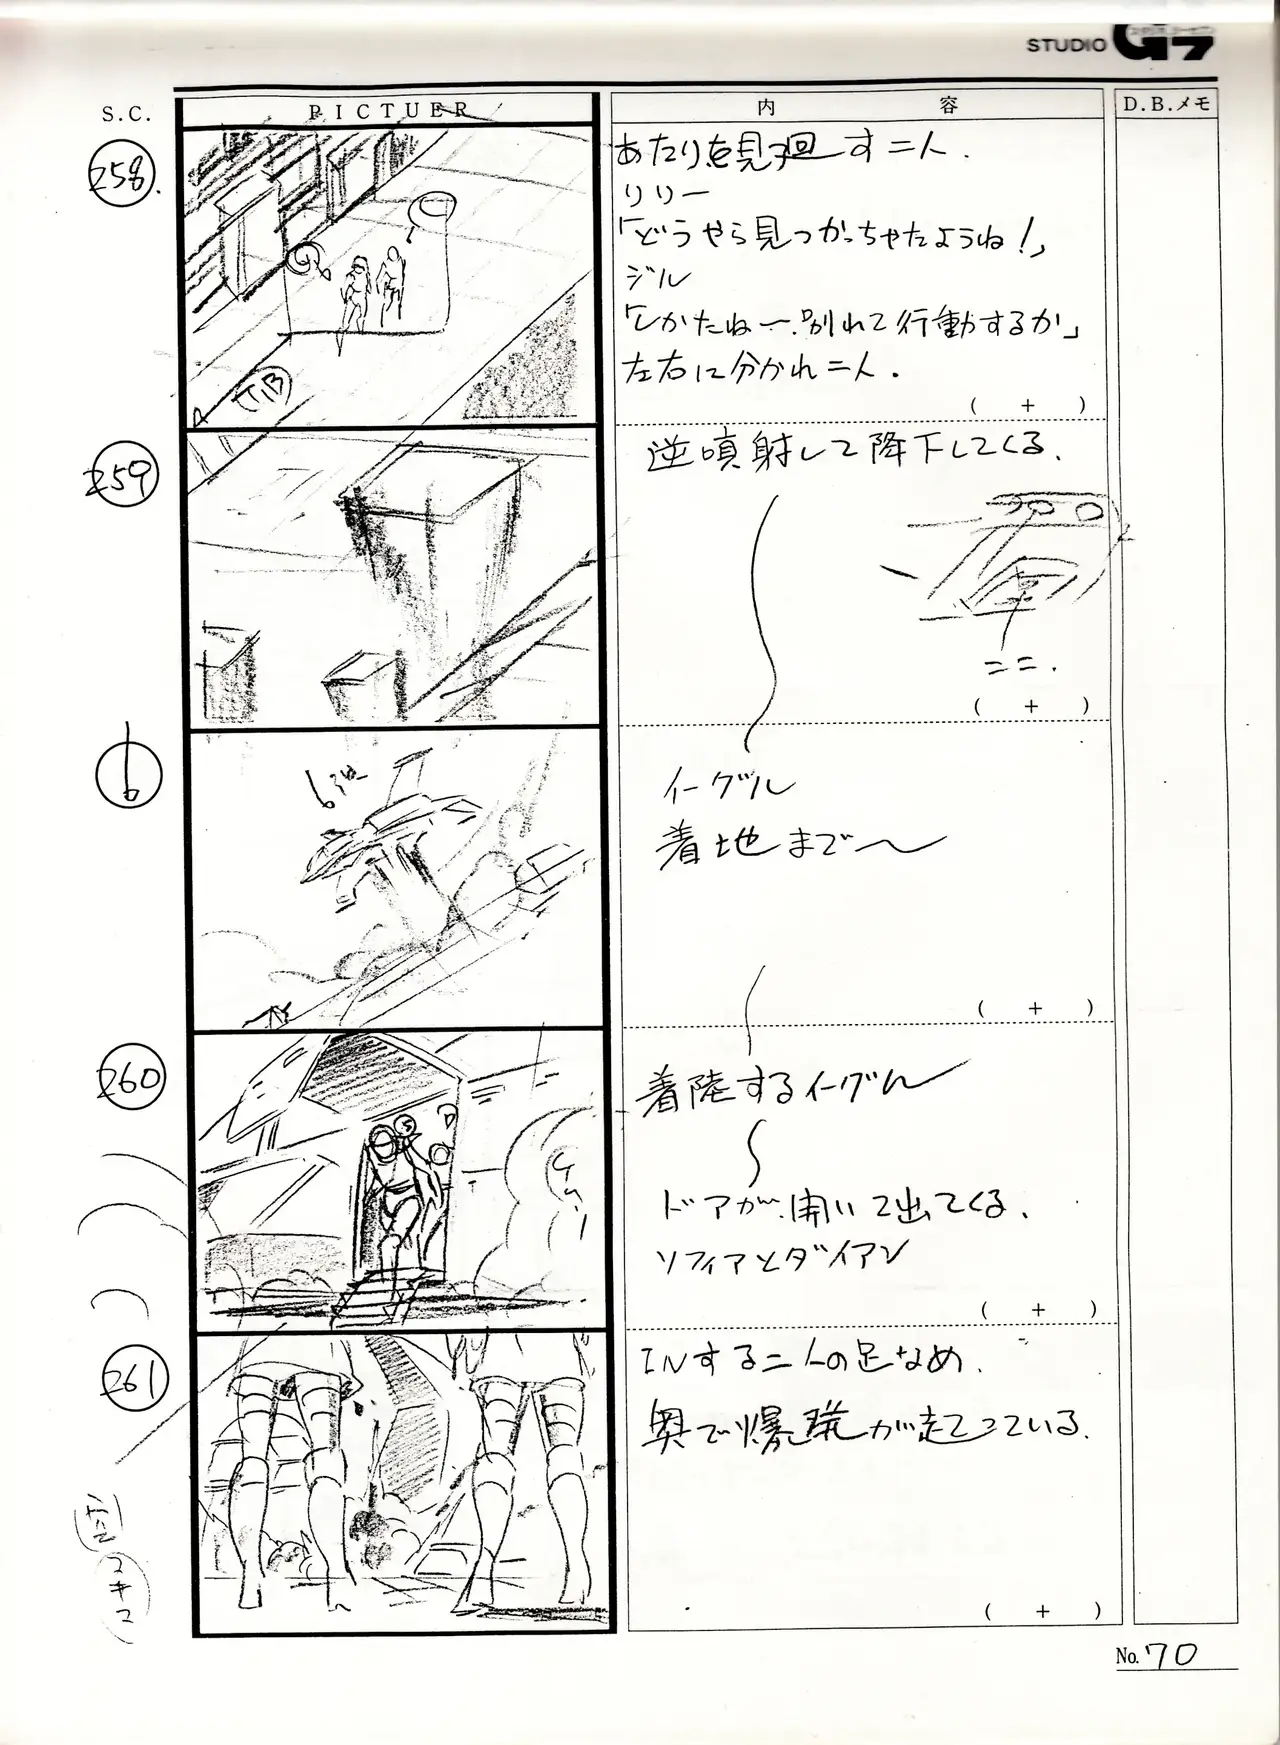 STUDIO G7
S.C.
PICTUER
内 容
D.B.メモ
258.
あたりを見回す二人.
リリー
「どうやら見つかっちゃたようね!」
ジル
「しかたねー.別れて行動するか」
左右に分かれ二人.
T.B
( + )
259
逆噴射して降下してくる.
ココ.
( + )
イーグル
着地まで〜
( + )
260
着陸するイーグル
S
D
ドアが開いて出てくる.
ソフィアとダイアン
( + )
261
INする二人の足なめ.
奥で爆発が起こっている.
( + )
No. 70